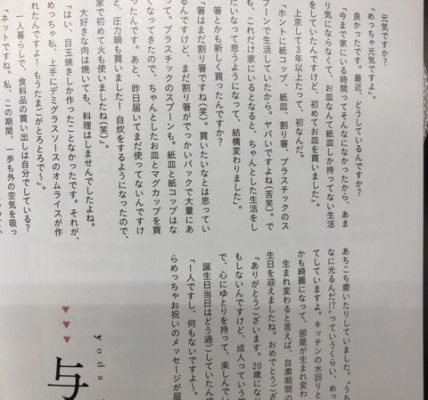 元気ですか?
「めっちゃ元気ですよ」。
良かったです。最近、どうしているんですか?
「今まで家にいる時間ってそんなになかったから、あま
り気にならなくて、お皿なんて紙皿しか持ってない生活
をしていたんですけど、初めてお皿を買いました」。
上京して3年以上たって、初なんだ。
「ホントに紙コップ、紙皿、割り箸、プラスチックのス
プーンで生活していたから。ヤバいですよね(苦笑)。で
も、これだけ家にいるとなると、ちゃんとした生活をし
たいなって思うようになって、結構変わりました」。
箸とかも新しく買ったんですか?
「箸はまだ割り箸ですね(笑)。買いたいなとは思ってい
るんですけど、まだ割り箸がでっかいパックで大量にあ
って。プラスチックのスプーンも。紙皿と紙コップはな
くなってきたので、ちゃんとしたお皿とマグカップを買
ったんです。あと、昨日届いてまだ使ってないんですけ
ど、圧力鍋も買いました! 自炊をするようになったので、
家で初めて火も使いましたね(笑)」。
大好きな肉は焼いても、料理はしませんでしたよね。
「はい、目玉焼きしか作ったことなかったです。それが、
めっちゃ私、上手にデミグラスソースのオムライスが作
れたんですよ! もうたまごがとろとろで〜」。
一人暮らしで、食料品の買い出しは自分でしている?
「ネットですね。私、この期間、一歩も外の空気を吸っ
あちこち磨いたりしていました。〝うち
なに光るんだ!?〟っていうくらい、めっ
てしていますよ。キッチンの水回りと
かも綺麗になって、部屋が生まれ変わ
生まれ変わると言えば、自粛期間の
生日を迎えましたね。おめでとうござ
「ありがとうございます。20歳になり
もしないんですけど、成人っていう
で、心にゆとりを持って、楽しんで
誕生日当日はどう過ごしていたんで
「1人ですし、何もないですよ!
らめっちゃお祝いのメッセージが届
yoda
与